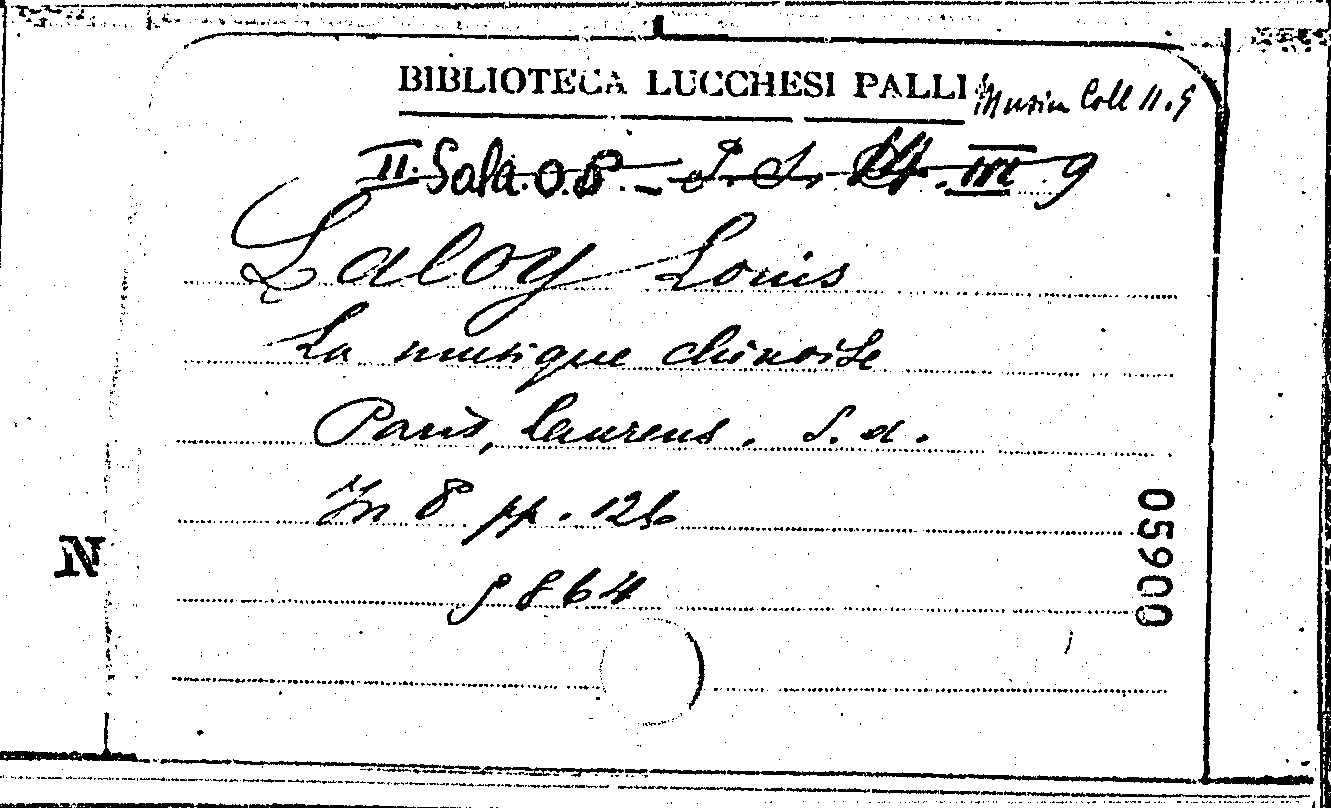 BIBLIOTECA LUCCHESI PALLI
Musica Coll 11.9
II. Sala. O. 9
Laloy Louis
La musique chinoise
Paris, Laurens. S. d.
In 8° pp. 126
9864
N
05900